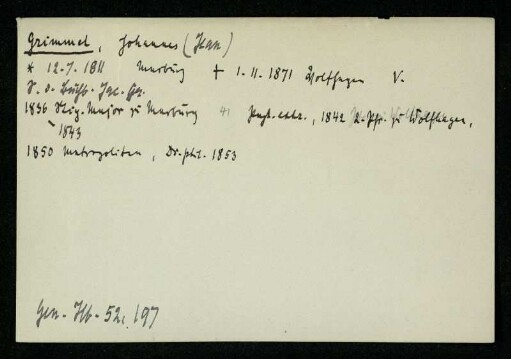 Grimmel, Johannes (Jean)
* 12.7.1811 Marburg † 1.11.1871 Wolfhagen V.
S. v. Buchb. Jac. Gr.
1836 Stip. Major zu Marburg 41 Pfr. extr., 1842 2. Pfr. zu Wolfhagen,
1843
1850 Metropolitan, Dr. phil. 1853
Gen. Hb. 52, 197